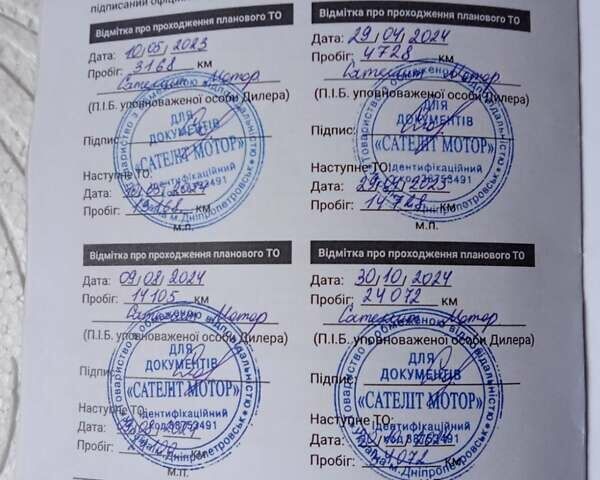 підписаний офіці
Відмітка про проходження планового ТО
Дата: 10,05,2023
Пробіг: 3168 км
Сателлит Мотор
(П.І.Б. уповноваженої особи Дилера)
Підпис:
Наступне ТО:
Дата:
Пробіг: 13168 км
м.п.
ДЛЯ
ДОКУМЕНТІВ
«САТЕЛІТ МОТОР»
Ідентифікаційний
м.Дніпропетровськ
Відмітка про проходження планового ТО
Дата: 29,04,2024
Пробіг: 4728 км
Сателлит Мотор
(П.І.Б. уповноваженої особи Дилера)
Підпис:
Наступне ТО:
Дата: 29,04,2025
Пробіг: 14728 км
м.п.
ДЛЯ
ДОКУМЕНТІВ
«САТЕЛІТ МОТОР»
Ідентифікаційний
м.Дніпропетровськ
Відмітка про проходження планового ТО
Дата: 09,08,2024
Пробіг: 14105 км
Сателлит Мотор
(П.І.Б. уповноваженої особи Дилера)
Підпис
Наступне ТО:
Дата:
Пробіг: км
м.п.
ДЛЯ
ДОКУМЕНТІВ
«САТЕЛІТ МОТОР»
Ідентифікаційний
код 38753491
м.Дніпропетровськ
Відмітка про проходження планового ТО
Дата: 30,10,2024
Пробіг: 24072 км
Сателлит Мотор
(П.І.Б. уповноваженої особи Дилера)
Підпис
Наступне ТО:
Дата:
Пробіг: км
м.п.
ДЛЯ
ДОКУМЕНТІВ
«САТЕЛІТ МОТОР»
Ідентифікаційний
код 38753491
м.Дніпропетровськ